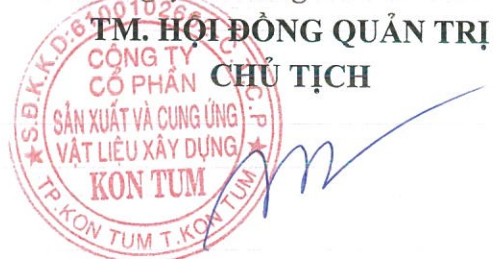 TM. HỘI ĐỒNG QUẢN TRỊ
CHỦ TỊCH
S.Đ.K.K.D:6100102663 C.T.C.P
CÔNG TY
CỔ PHẦN
SẢN XUẤT VÀ CUNG ỨNG
VẬT LIỆU XÂY DỰNG
KON TUM
TP.KON TUM T.KON TUM